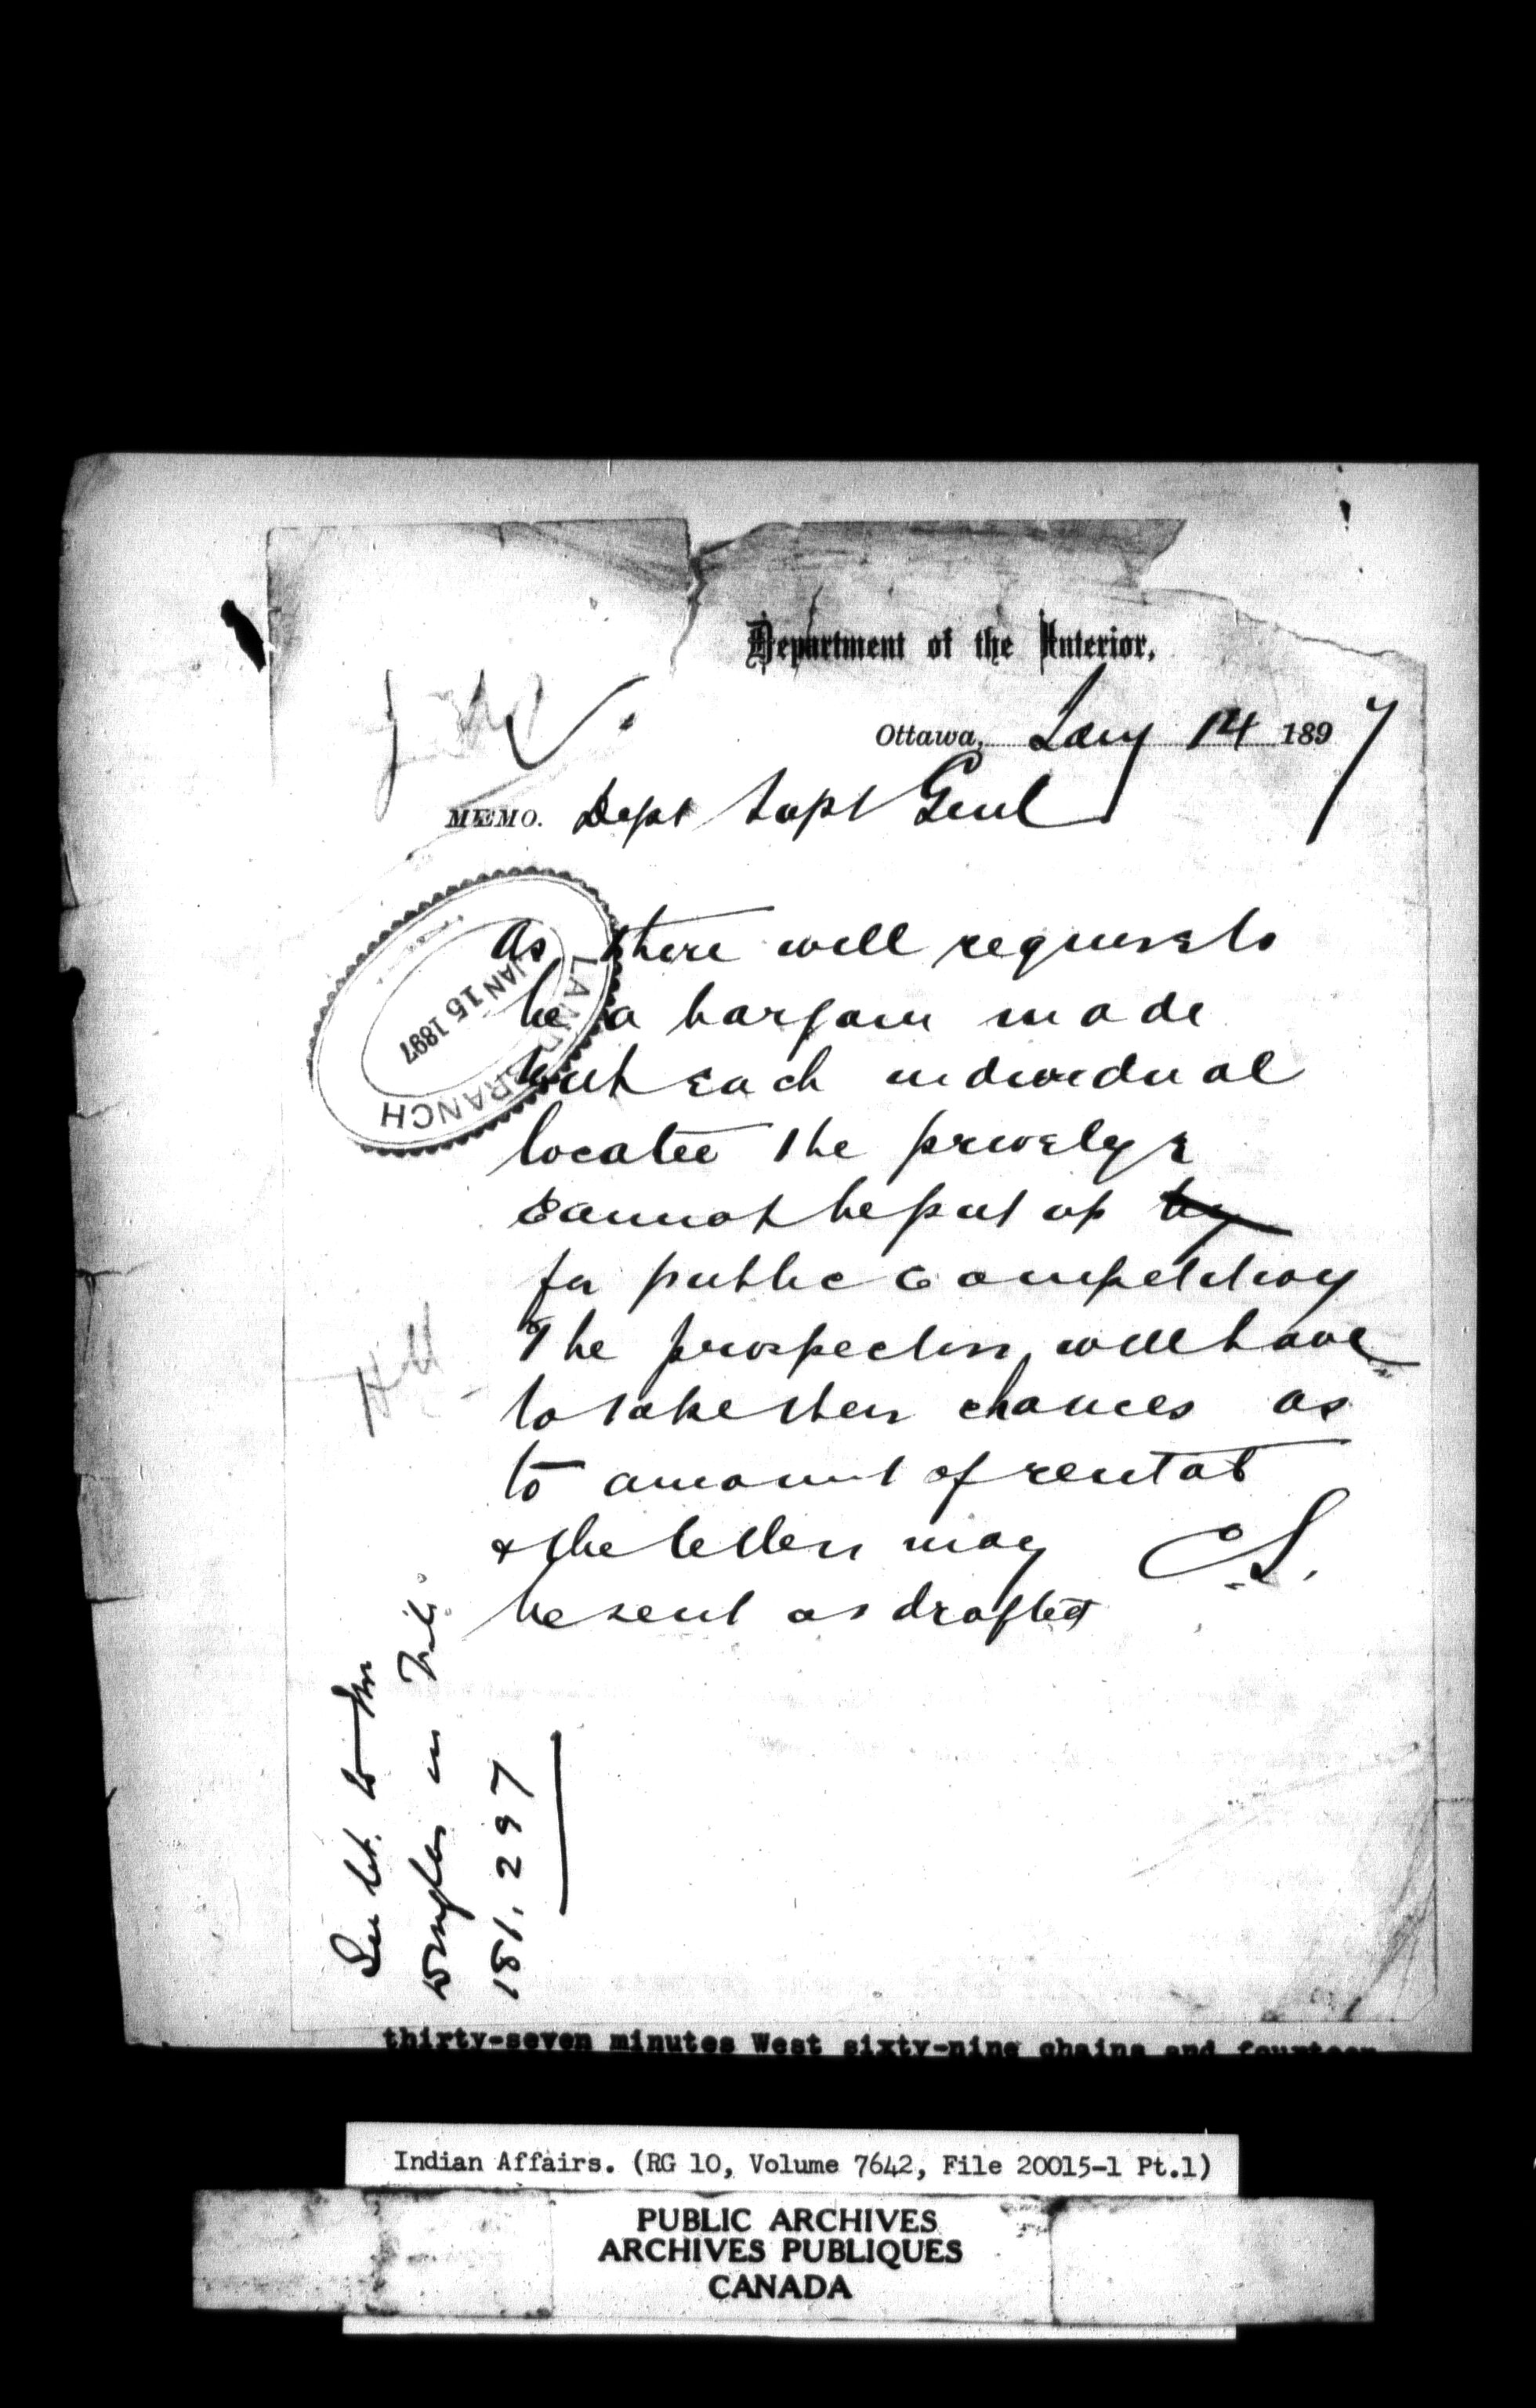 Department of the Interior,
Ottawa, Jany 14 1897
MEMO. Dept Supt Genl
LAND BRANCH
JAN 15 1897
As there will require to
be a bargain made
with each individual
locatee the privelge
cannot be put up by
for public competition
The prospectors will have
to take their chances as
to amount of rental
& the letters may
be sent as drafted
CS.
See let. to Mr
Douglas on File
181,297
thirty-seven minutes West sixty-nine chains and fourteen
Indian Affairs. (RG 10, Volume 7642, File 20015-1 Pt.1)
PUBLIC ARCHIVES
ARCHIVES PUBLIQUES
CANADA